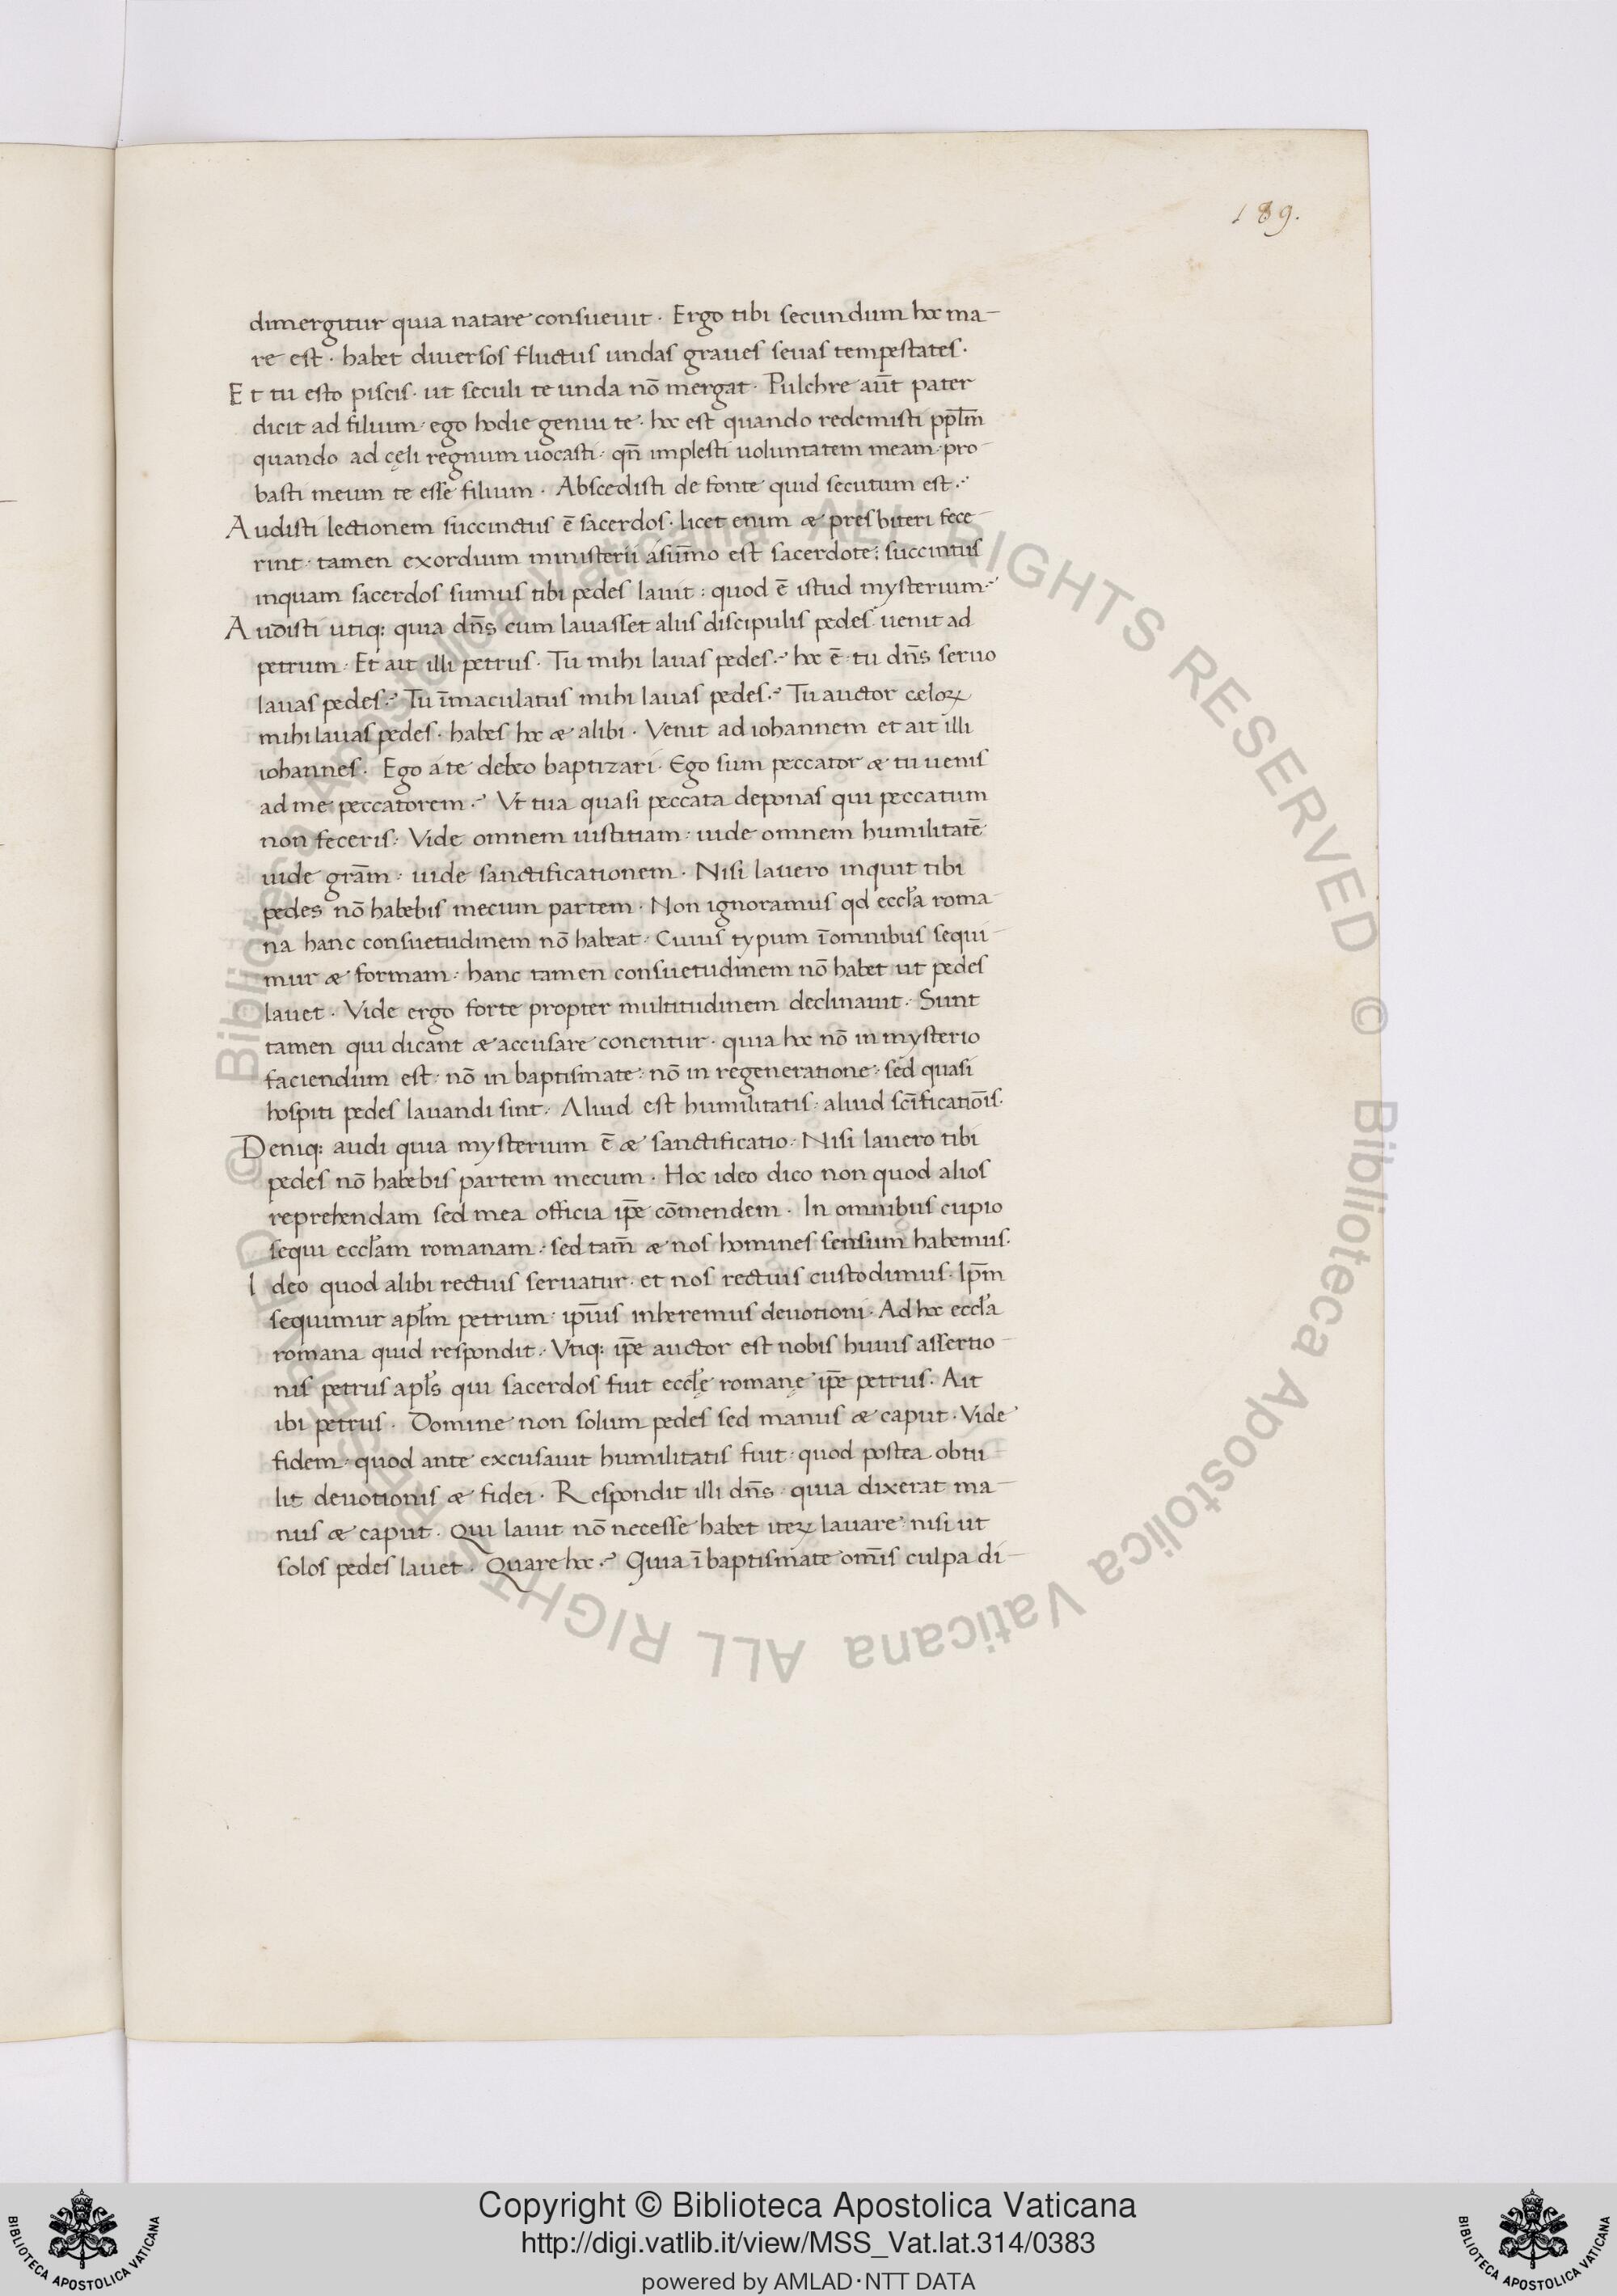 189.
dimergitur quia natare consueuit · Ergo tibi secundum hoc ma-
re est · habet diuersos fluctus undas graues seuas tempestates ·
Et tu esto piscis · ut seculi te unda nō mergat · Pulchre aūt pater
dicit ad filium · ego hodie genui te · hoc est quando redemisti pp̄lm
quando ad cęli regnum uocasti · qn̄ implesti uoluntatem meam · pro-
basti meum te esse filium · Abscedisti de fonte quid secutum est ·
Audisti lectionem succinctus ē sacerdos · licet enim & presbiteri fece-
rint · tamen exordium ministerii a sum̄o est sacerdote : succintus
inquam sacerdos sumus tibi pedes lauit : quod ē istud mysterium ·
Audisti utiq: quia dn̄s cum lauasset aliis discipulis pedes uenit ad
petrum · Et ait illi petrus · Tu mihi lauas pedes · hoc ē · tu dn̄s seruo
lauas pedes · Tu īmaculatus mihi lauas pedes · Tu auctor celoꝝ
mihi lauas pedes · habes hoc & alibi · Venit ad iohannem et ait illi
iohannes · Ego a te debeo baptizari · Ego sum peccator & tu uenis
ad me peccatorem · Vt tua quasi peccata deponas qui peccatum
non feceris · Vide omnem iustitiam : uide omnem humilitatē
uide grām : uide sanctificationem · Nisi lauero inquit tibi
pedes nō habebis mecum partem · Non ignoramus qd eccłia roma-
na hanc consuetudinem nō habeat · Cuius typum ī omnibus sequi-
mur & formam : hanc tamen consuetudinem nō habet ut pedes
lauet · Vide ergo forte propter multitudinem declinauit · Sunt
tamen qui dicant & accusare conentur · quia hoc nō in mysterio
faciendum est · nō in baptismate · nō in regeneratione : sed quasi
hospiti pedes lauandi sint · Aliud est humilitatis : aliud sc̄ificatiōis ·
Deniq: audi quia mysterium ē & sanctificatio · Nisi lauero tibi
pedes nō habebis partem mecum · Hoc ideo dico non quod alios
reprehendam sed mea officia ip̄e cōmendem · In omnibus cupio
sequi eccłam romanam : sed tam̄ & nos homines sensum habemus ·
Ideo quod alibi rectius seruatur · et nos rectius custodimus · Ip̄m
sequimur apłm petrum · ip̄ius inheremus deuotioni · Ad hoc eccła
romana quid respondit · Vtiq: ip̄e auctor est nobis huius assertio-
nis petrus apłs qui sacerdos fuit eccłę romanę ip̄e petrus · Ait
ibi petrus · Domine non solum pedes sed manus & caput · Vide
fidem · quod ante excusauit humilitatis fuit · quod postea obtu-
lit deuotionis & fidei · Respondit illi dn̄s · quia dixerat ma-
nus & caput · Qui lauit nō necesse habet iteꝝ lauare · nisi ut
solos pedes lauet · Quare hoc · Quia ī baptismate om̄is culpa di-
© Biblioteca Apostolica Vaticana ALL RIGHTS RESERVED © Biblioteca Apostolica Vaticana ALL RIGHTS RESERVED
Copyright © Biblioteca Apostolica Vaticana
http://digi.vatlib.it/view/MSS_Vat.lat.314/0383
powered by AMLAD·NTT DATA
BIBLIOTECA APOSTOLICA VATICANA
BIBLIOTECA APOSTOLICA VATICANA